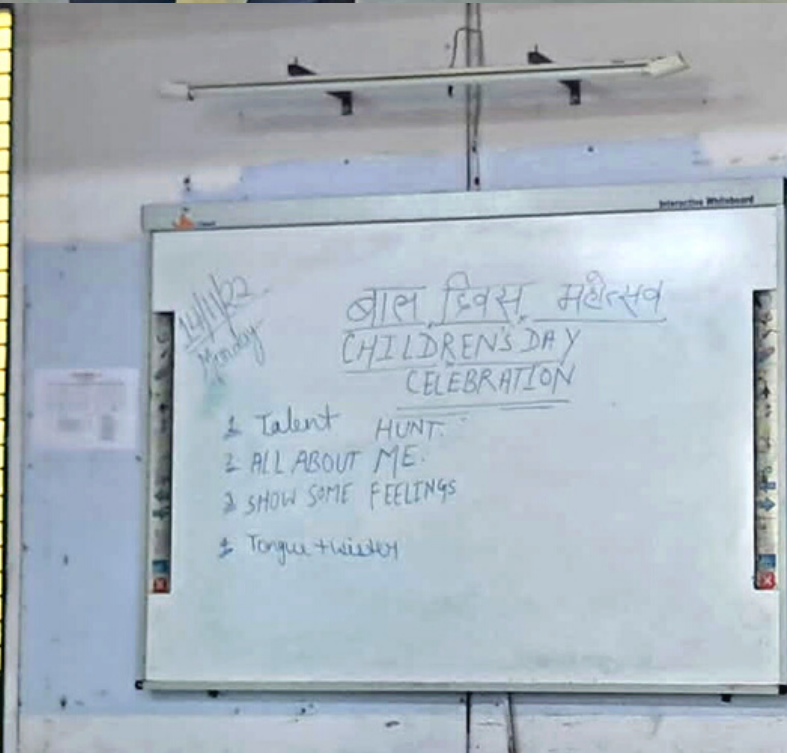 Interactive Whiteboard
14/11/22
Monday
बाल दिवस महोत्सव
CHILDREN'S DAY
CELEBRATION
1 Talent HUNT.
2 ALL ABOUT ME.
3 SHOW SOME FEELINGS
4 Tongue twister